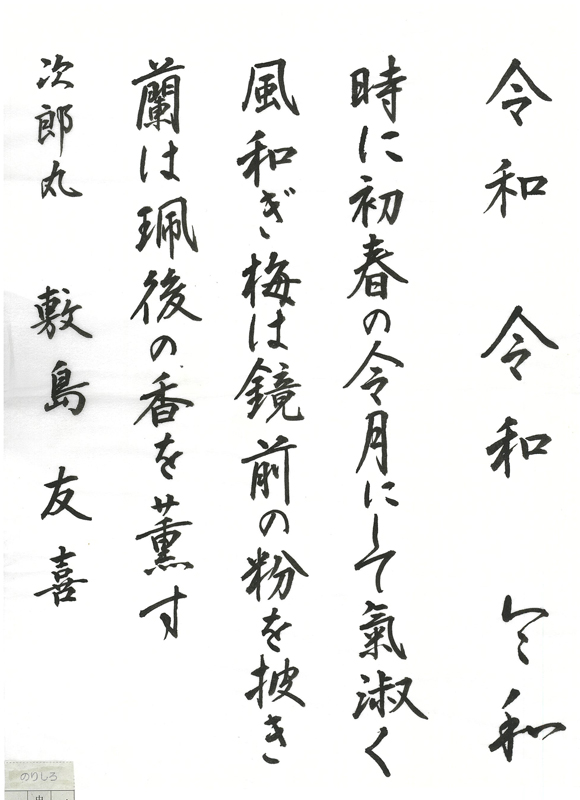 令和　令和　令和
時に初春の令月にして氣淑く
風和ぎ梅は鏡前の粉を披き
蘭は珮後の香を薫す
次郎丸　敷島友喜
のりしろ